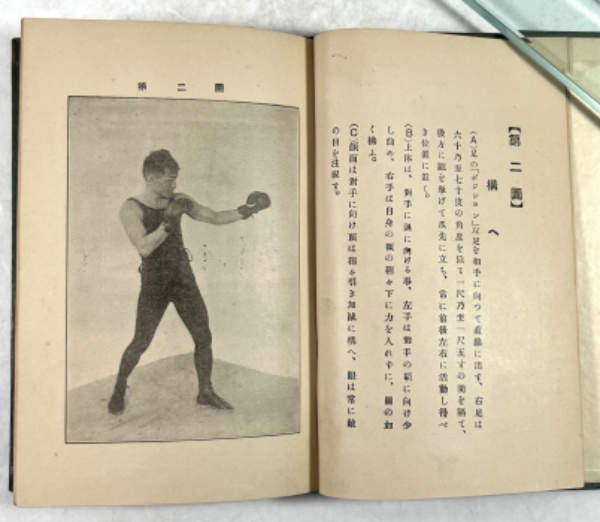 第二圖
【第二圖】
構へ
(A)足の「ポジション」左足を相手に向つて直線に出す、右足は
六十乃至七十度の角度を以て一尺乃至一尺五寸の間を隔て、
後方に踵を擧げて爪先に立ち、常に前後左右に活動し得べ
き位置に置く。
(B)上体は、對手に斜に向ける事、左手は對手の顔に向け少
し曲め、右手は自身の顎の稍々下に力を入れずに、圖の如
く構ふ。
(C)顔面は對手に向け頭は稍々引き加減に構へ、眼は常に敵
の目を注視す。